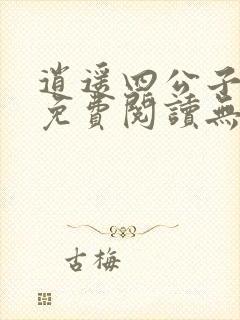 逍遥四公子
免費閱讀無
古梅